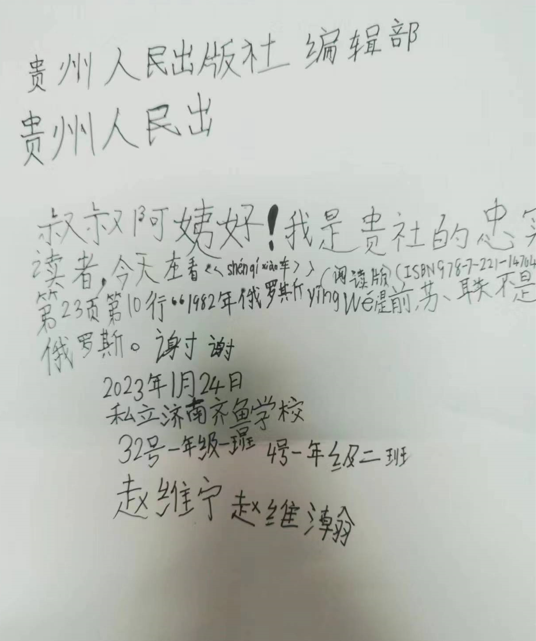 贵州人民出版社 编辑部
贵州人民出
叔叔阿姨好！我是贵社的忠实
读者，今天在看《shéng qì xiǎo车》（阅读版）（ISBN978-7-221-14764
第23页第10行“1982年俄罗斯yīng wéi是前苏、联不是
俄罗斯。谢寸 谢
2023年1月24日
私立济南齐鲁学校
32号一年级一班 4号一年级二班
赵维宁 赵维瀚